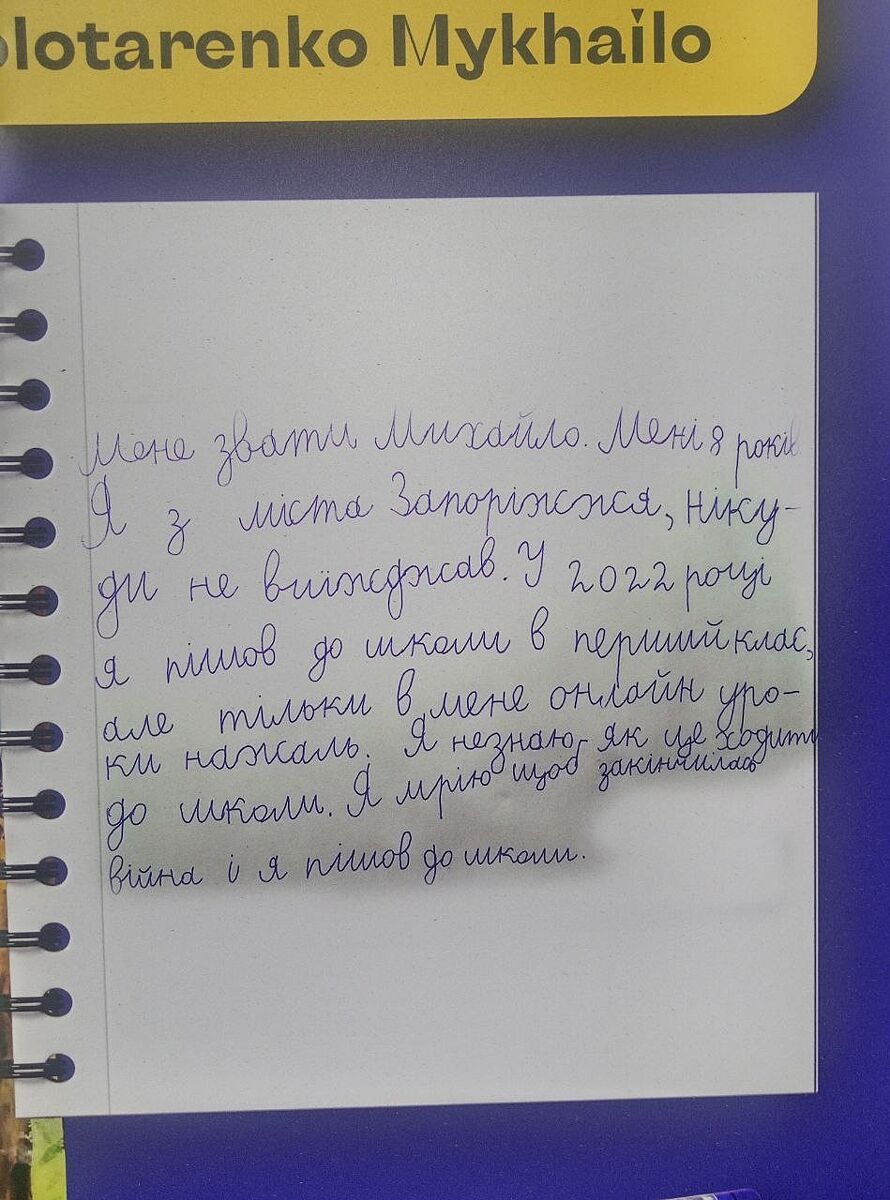 olotarenko Mykhailo
Мене звати Михайло. Мені 8 років
Я з міста Запоріжжя, ніку-
ди не виїжджав. У 2022 році
я пішов до школи в перший клас,
але тільки в мене онлайн уро-
ки нажаль. Я незнаю як це ходити
до школи. Я мрію щоб закінчилась
війна і я пішов до школи.